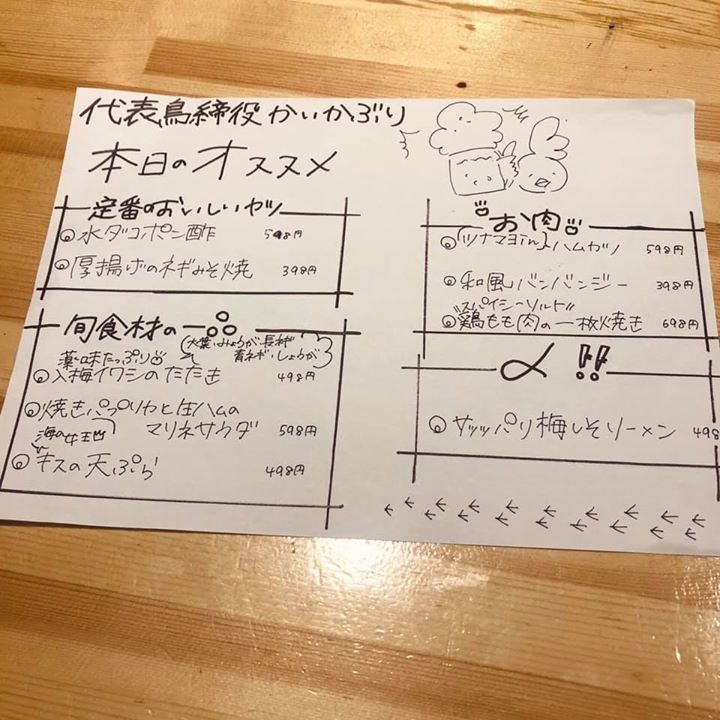 代表鳥締役かいかぶり
本日のオススメ
定番のおいしいヤツ
水ダコポン酢 598円
厚揚げのネギみそ焼 398円
旬食材の一品
大葉・みょうが・長ネギ
青ネギ・しょうが
薬味たっぷり
入梅イワシのたたき 498円
焼きパプリカと生ハムの
マリネサラダ 598円
海の女王
キスの天ぷら 498円
お肉
ツナマヨinハムカツ 598円
和風バンバンジー 398円
"スパイシーソルト"
鶏もも肉の一枚焼き 698円
〆!!
サッパリ梅しそソーメン 498